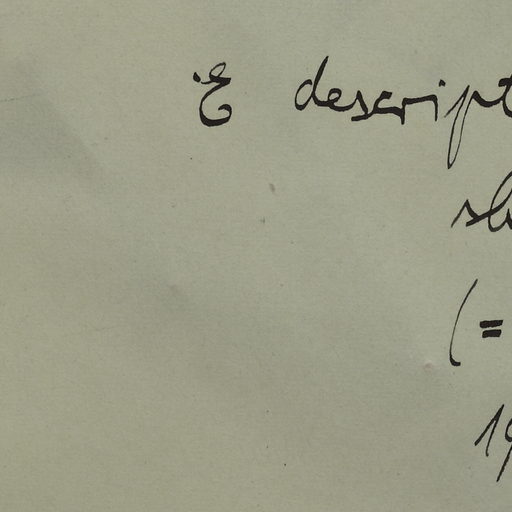 E descript
sh
(=
19